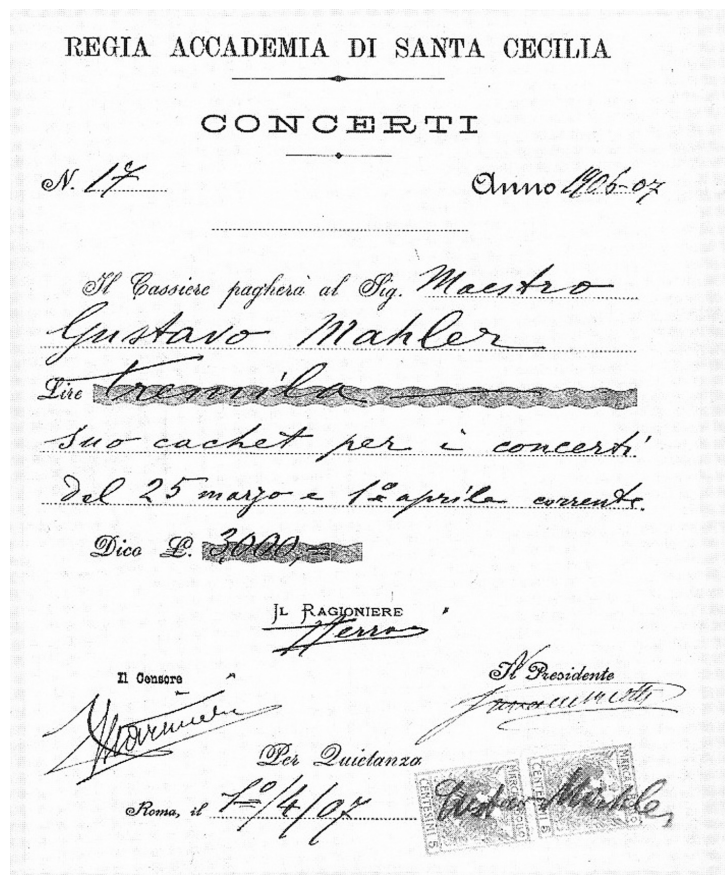 REGIA ACCADEMIA DI SANTA CECILIA
CONCERTI
N. 17 Anno 1906-07
Il Cassiere pagherà al Sig. Maestro
Gustavo Mahler
Lire Tremila
suo cachet per i concerti
del 25 marzo e 1º aprile corrente.
Dico L. 3,000,=
IL RAGIONIERE
Il Censore Il Presidente
Per Quietanza
Roma, il 1º/4/07 Gustav Mahler
CENTESIMI 5
CENTESIMI 5